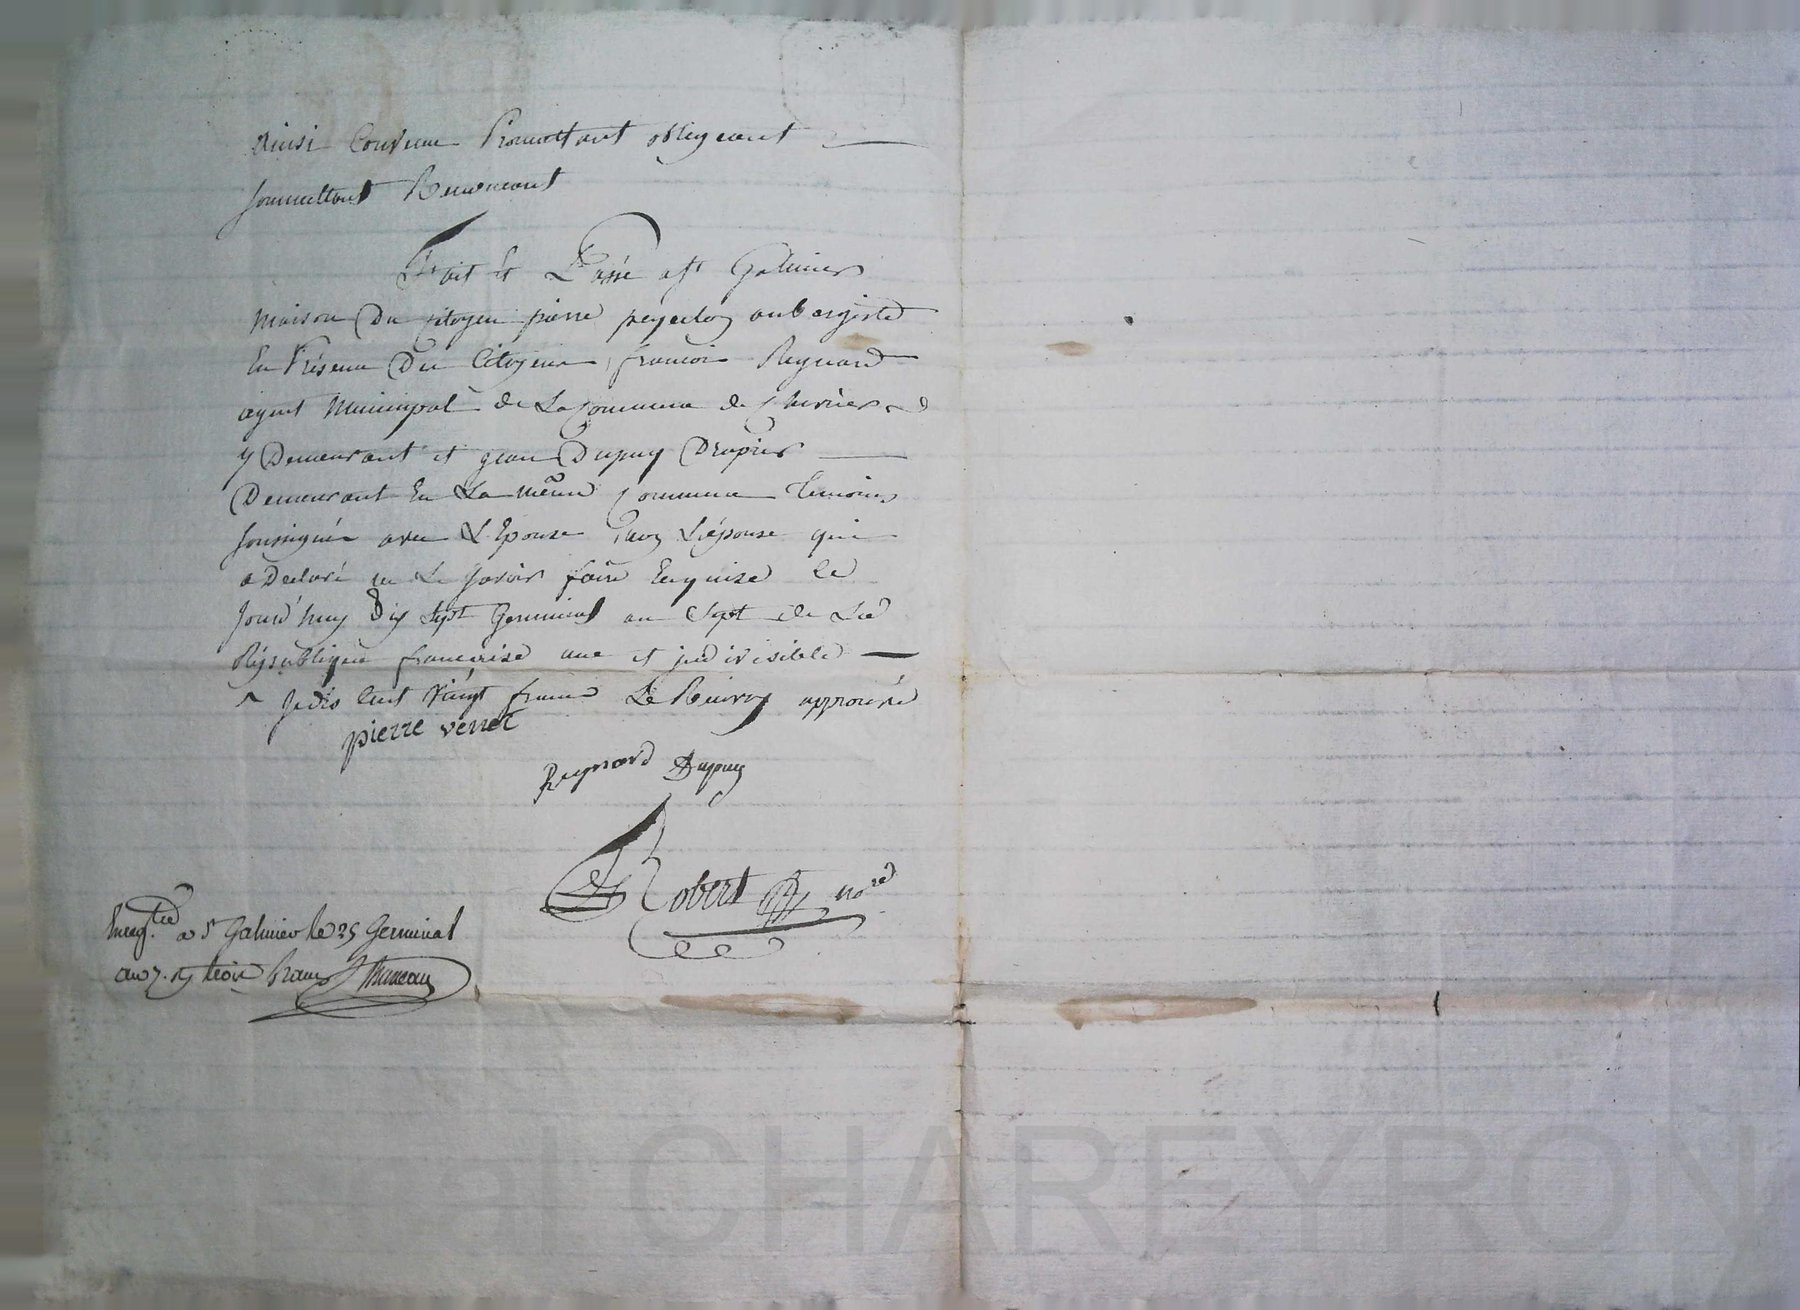 ainsi Convenu Promettant obligeant
soumettant Renoncant
Fait Et Passé a St Galmier
maison Du Citoyen pierre aubergiste
En Présence Du Citoyen francois Reynard
agent Municipal de La Commune de Chevrieres
y Demeurant et jean Dupuy
Demeurant En La même Commune temoins
soussignés avec L'Epoux Lépouse qui
a Déclaré ne Le savoir faire Enquise Ce
jourd'huy Dix sept Germinal an sept de La
République francaise une et indivisible
Cent vingt francs Le Renvoy approuvé
pierre verret
Reynard Dupuy
Robert nore
Enreg.tré a St Galmier le 25 Germinal
an 7. trois francs
CHAREYRON